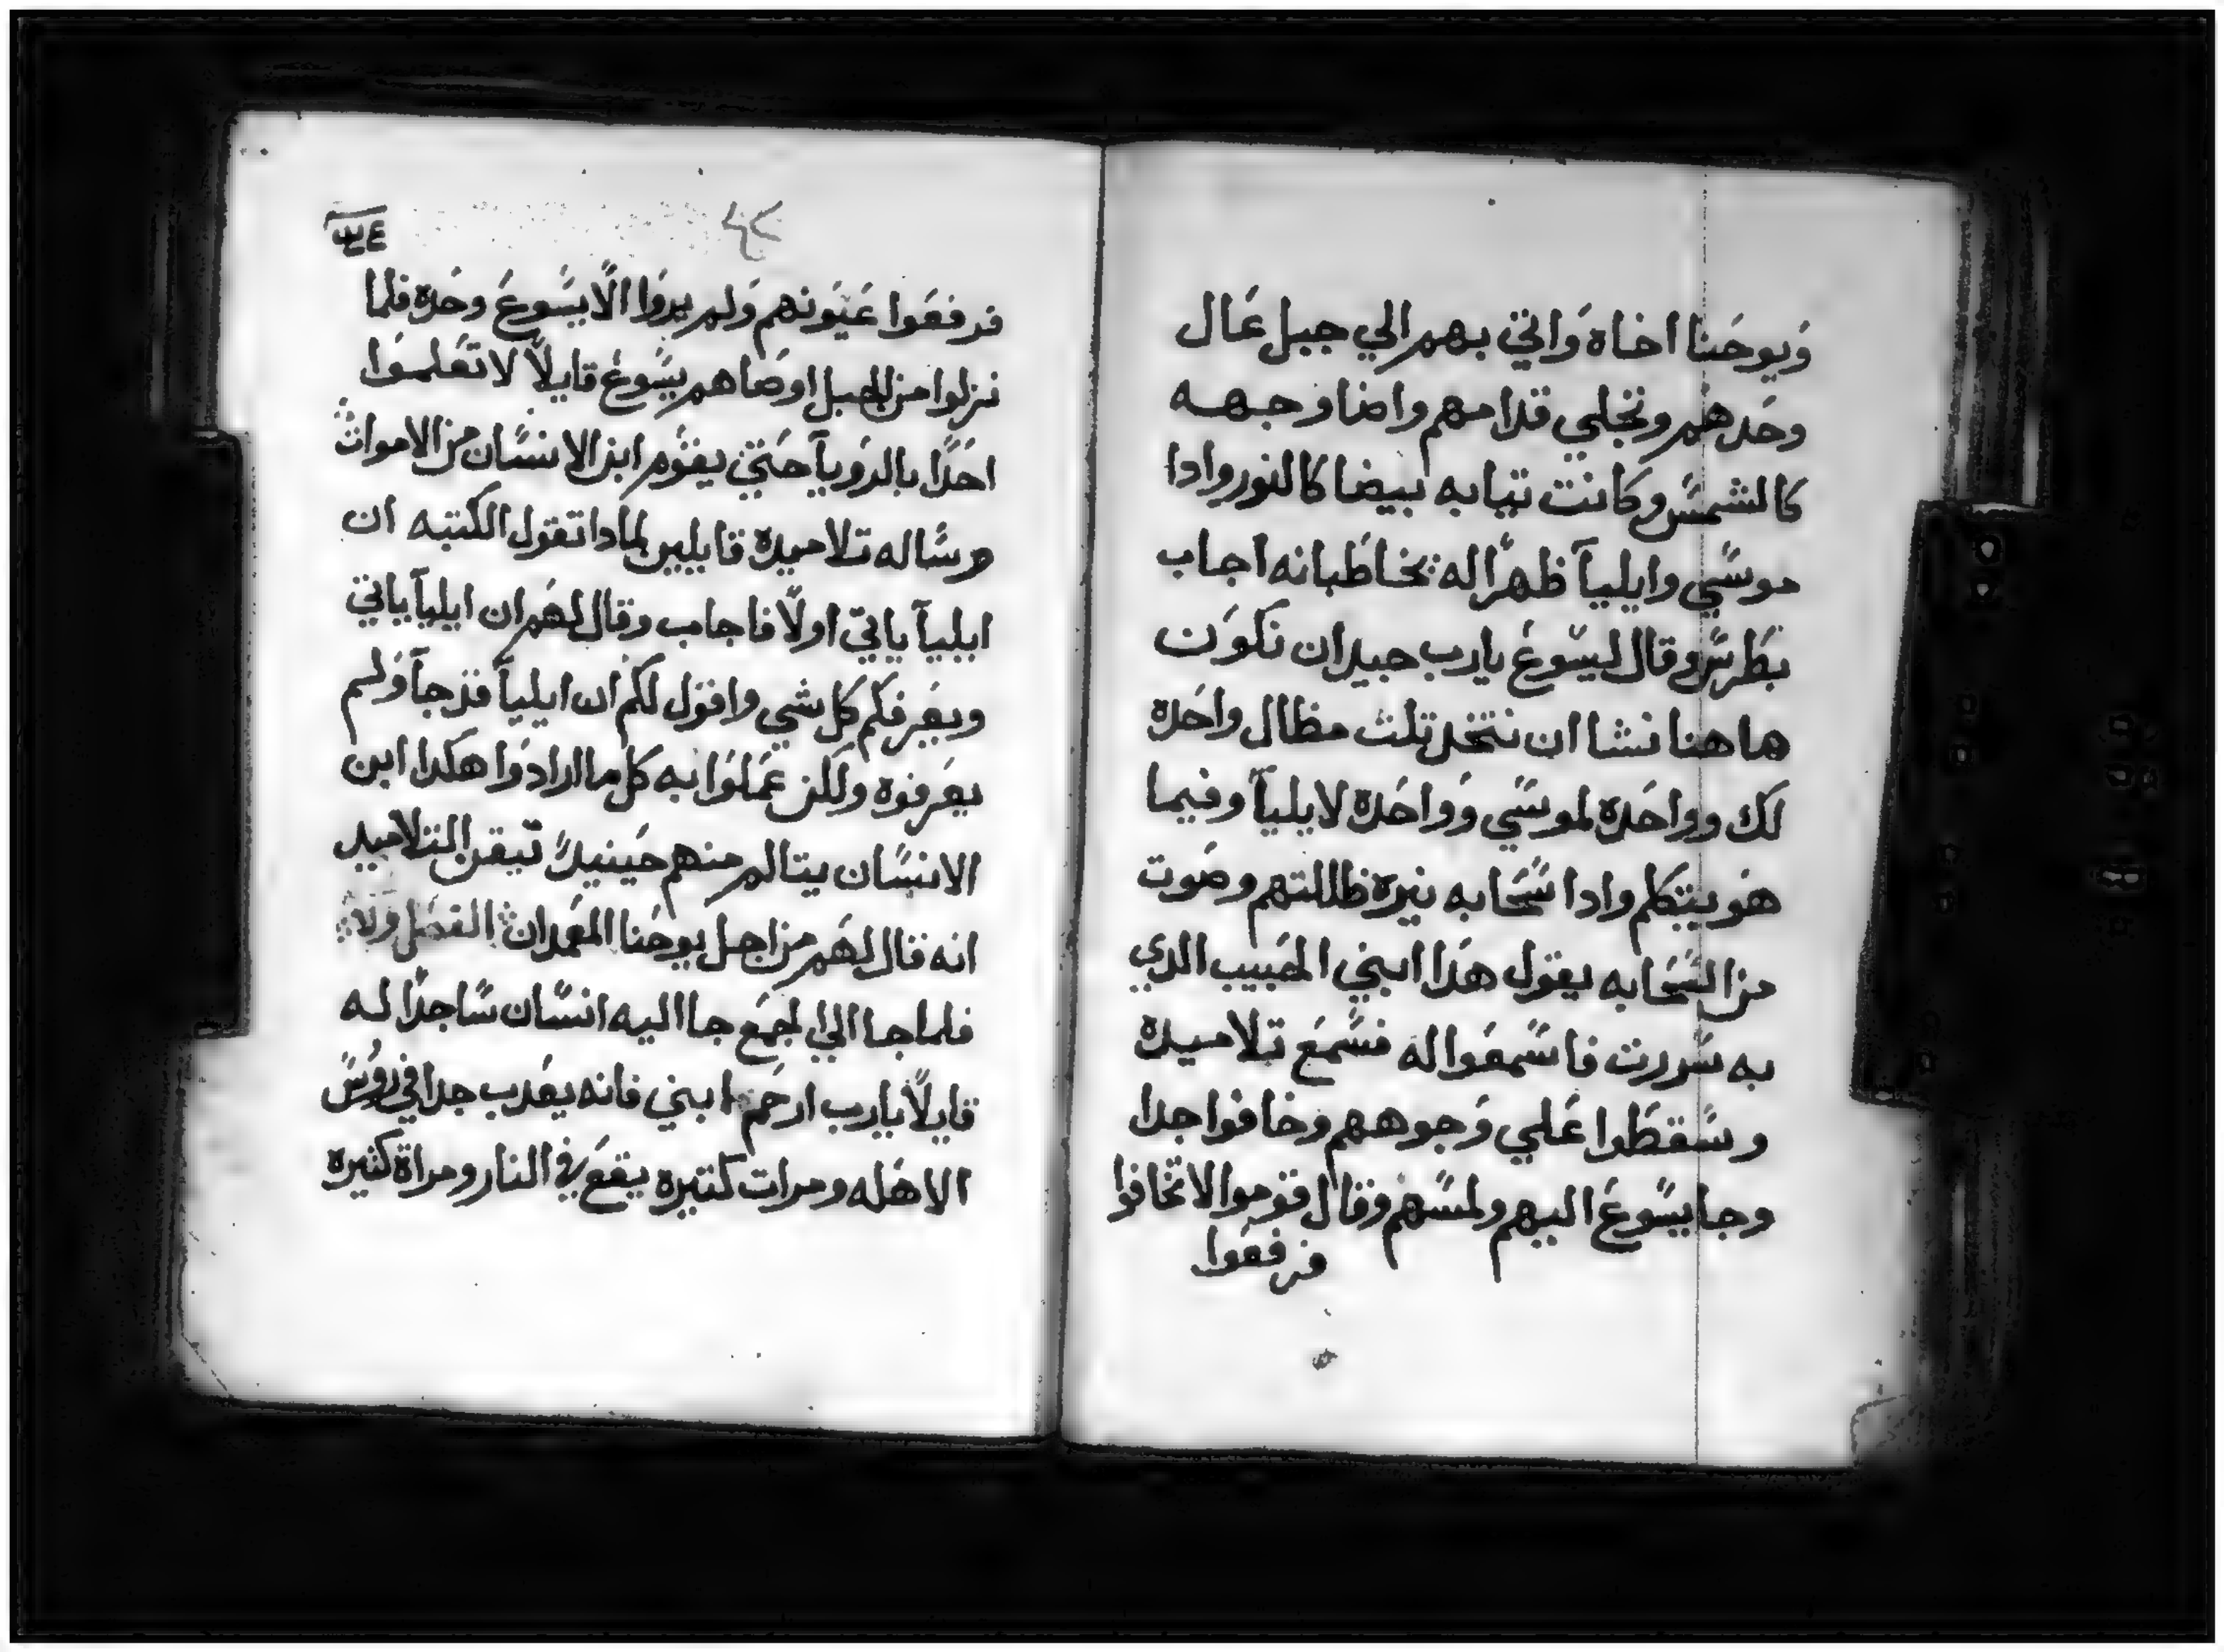 ويوحنا اخاه واتي بهم الي جبل عال
وحدهم وتجلي قدامهم واضا وجهه
كالشمس وكانت تيابه بيضا كالنور وادا
موسي وايليا ظهرا له يخاطبانه اجاب
بطرس وقال ليسوع يارب جيدان نكون
هاهنا نشا ان نتخد تلت مظال واحده
لك وواحده لموسي وواحده لايليا وفيما
هو يتكلم وادا سحابه نيره ظللتهم وصوت
من السحابه يقول هدا ابني الحبيب الدي
به سررت فاسمعوا له فسمع تلاميده
وسقطوا علي وجوههم وخافوا جدا
وجا يسوع اليهم ولمسهم وقال قوموا لا تخافوا
فرفعوا
فرفعوا عيونهم ولم يروا الا يسوع وحده فلما
نزلوا من الجبل اوصاهم يسوع قايلا لا تعلموا
احدا بالرويا حتي يقوم ابن الانسان من الاموات
وساله تلاميده قايلين لمادا تقول الكتبه ان
ايليا ياتي اولا فاجاب وقال لهم ان ايليا ياتي
ويعرفكم كل شي واقول لكم ان ايليا قد جا ولم
يعرفوه ولكن عملوا به كل ما ارادوا هكدا ابن
الانسان يتالم منهم حينيد تيقن التلاميد
انه قال لهم من اجل يوحنا المعمدان الفصل
فلما جا الي الجمع جا اليه انسان ساجدا له
قايلا يارب ارحم ابني فانه يعدب جدا في روس
الاهله ومرات كتيره يقع في النار ومراة كتيره